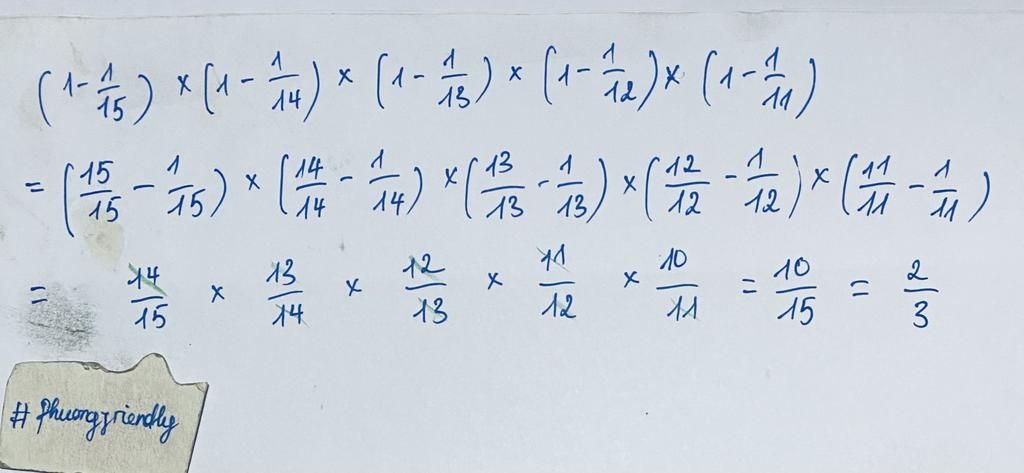 (1 - 1/15) × (1 - 1/14) × (1 - 1/13) × (1 - 1/12) × (1 - 1/11)
= (15/15 - 1/15) × (14/14 - 1/14) × (13/13 - 1/13) × (12/12 - 1/12) × (11/11 - 1/11)
= 14/15 × 13/14 × 12/13 × 11/12 × 10/11 = 10/15 = 2/3
# Phuongfriendly